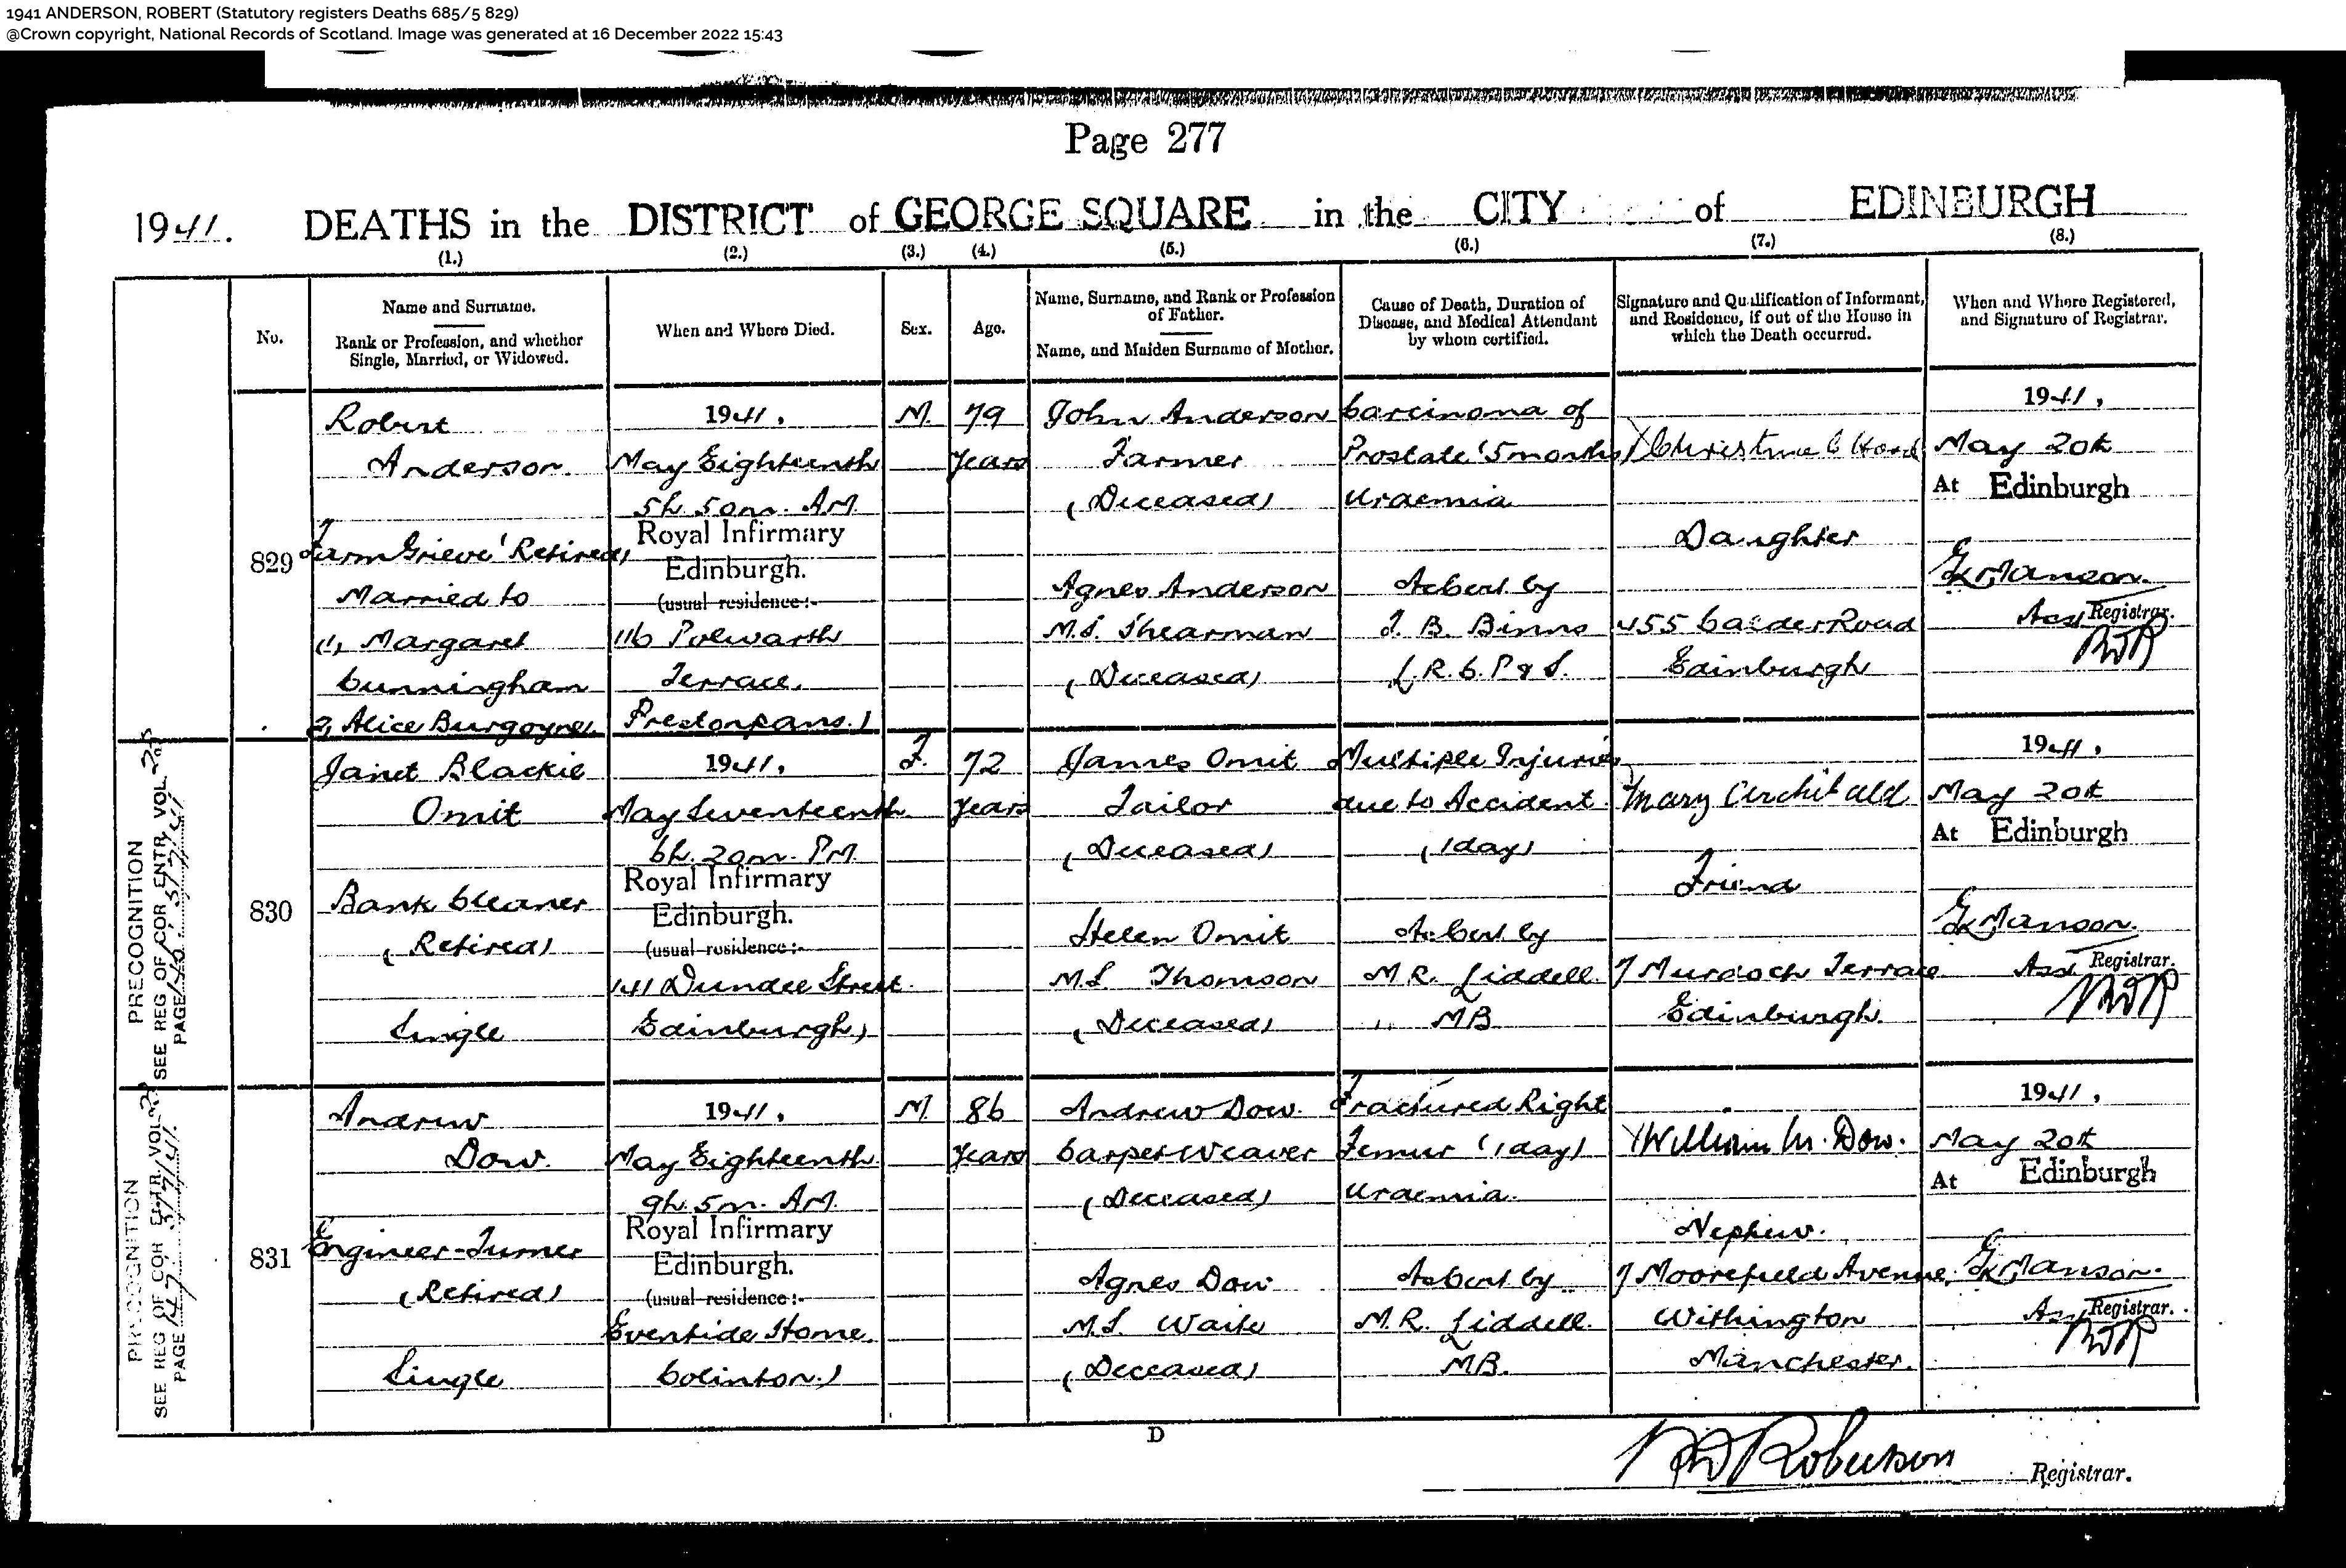 1941 ANDERSON, ROBERT (Statutory registers Deaths 685/5 829)
@Crown copyright, National Records of Scotland. Image was generated at 16 December 2022 15:43
Page 277
1941. DEATHS in the DISTRICT of GEORGE SQUARE in the CITY of EDINBURGH
(1.) (2.) (3.) (4.) (5.) (6.) (7.) (8.)
No.
Name and Surname.
Rank or Profession, and whether
Single, Married, or Widowed.
When and Where Died.
Sex.
Age.
Name, Surname, and Rank or Profession
of Father.
Name, and Maiden Surname of Mother.
Cause of Death, Duration of
Disease, and Medical Attendant
by whom certified.
Signature and Qualification of Informant,
and Residence, if out of the House in
which the Death occurred.
When and Where Registered,
and Signature of Registrar.
829
Robert
Anderson
Farm Grieve (Retired)
Married to
(1) Margaret
Cunningham
2) Alice Burgoyne.
1941.
May Eighteenth
5h. 50m. AM.
Royal Infirmary
Edinburgh.
(usual residence:-
116 Polwarth
Terrace,
Prestonpans.)
M.
79
years
John Anderson
Farmer
(Deceased)
Agnes Anderson
M.S. Shearman
(Deceased)
Carcinoma of
Prostate (5 months)
Uraemia
As Cert. by
J. B. Binns
L.R.C.P & S.
Christina C
Daughter
455 Calder Road
Edinburgh
1941.
May 20th
At Edinburgh
Manson.
Asst Registrar.
RDR
PRECOGNITION
SEE REG OF COR ENTR VOL
PAGE
830
Janet Blackie
Omit
Bank Cleaner
(Retired)
Single
1941.
May Seventeenth
6h. 20m. PM.
Royal Infirmary
Edinburgh.
(usual residence:-
141 Dundee Street
Edinburgh)
F.
72
years
James Omit
Tailor
(Deceased)
Helen Omit
M.S. Thomson
(Deceased)
Multiple Injuries
due to Accident
(1 day)
As Cert. by
M.R. Liddell.
MB
Mary Archibald
Friend
7 Murdoch Terrace
Edinburgh.
1941.
May 20th
At Edinburgh
Manson.
Asst Registrar.
RDR
PRECOGNITION
SEE REG OF COR ENTR VOL
PAGE 147
831
Andrew
Dow.
Engineer-Turner
(Retired)
Single
1941.
May Eighteenth
9h. 5m. AM.
Royal Infirmary
Edinburgh.
(usual residence:-
Eventide Home,
Colinton.)
M.
86
years
Andrew Dow.
Carpet Weaver
(Deceased)
Agnes Dow
M.S. Waite
(Deceased)
Fractured Right
Femur (1 day)
Uraemia.
As Cert. by
M.R. Liddell.
MB.
William M. Dow.
Nephew.
7 Moorefield Avenue,
Withington
Manchester.
1941.
May 20th
At Edinburgh
Manson.
Asst Registrar.
RDR
D
RD Robertson
Registrar.